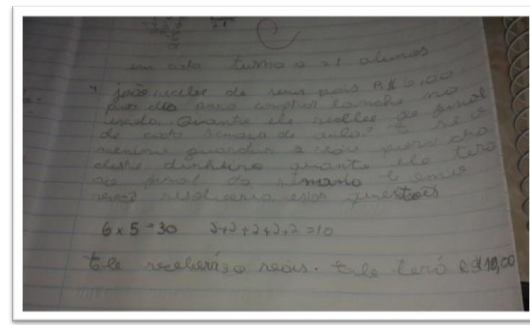 em cada turma a 21 alunos
4. João recebe de seus pais R$ 6,00
por dia para comprar lanche na
escola. Quanto ele recebe ao final
de cada semana de aula? E se o
menino guardar 2 reais por dia
deste dinheiro quanto ele terá
ao final da semana
resolveria estas questões
6 x 5 = 30 2+2+2+2+2=10
Ele receberá 30 reais. Ele terá R$ 10,00